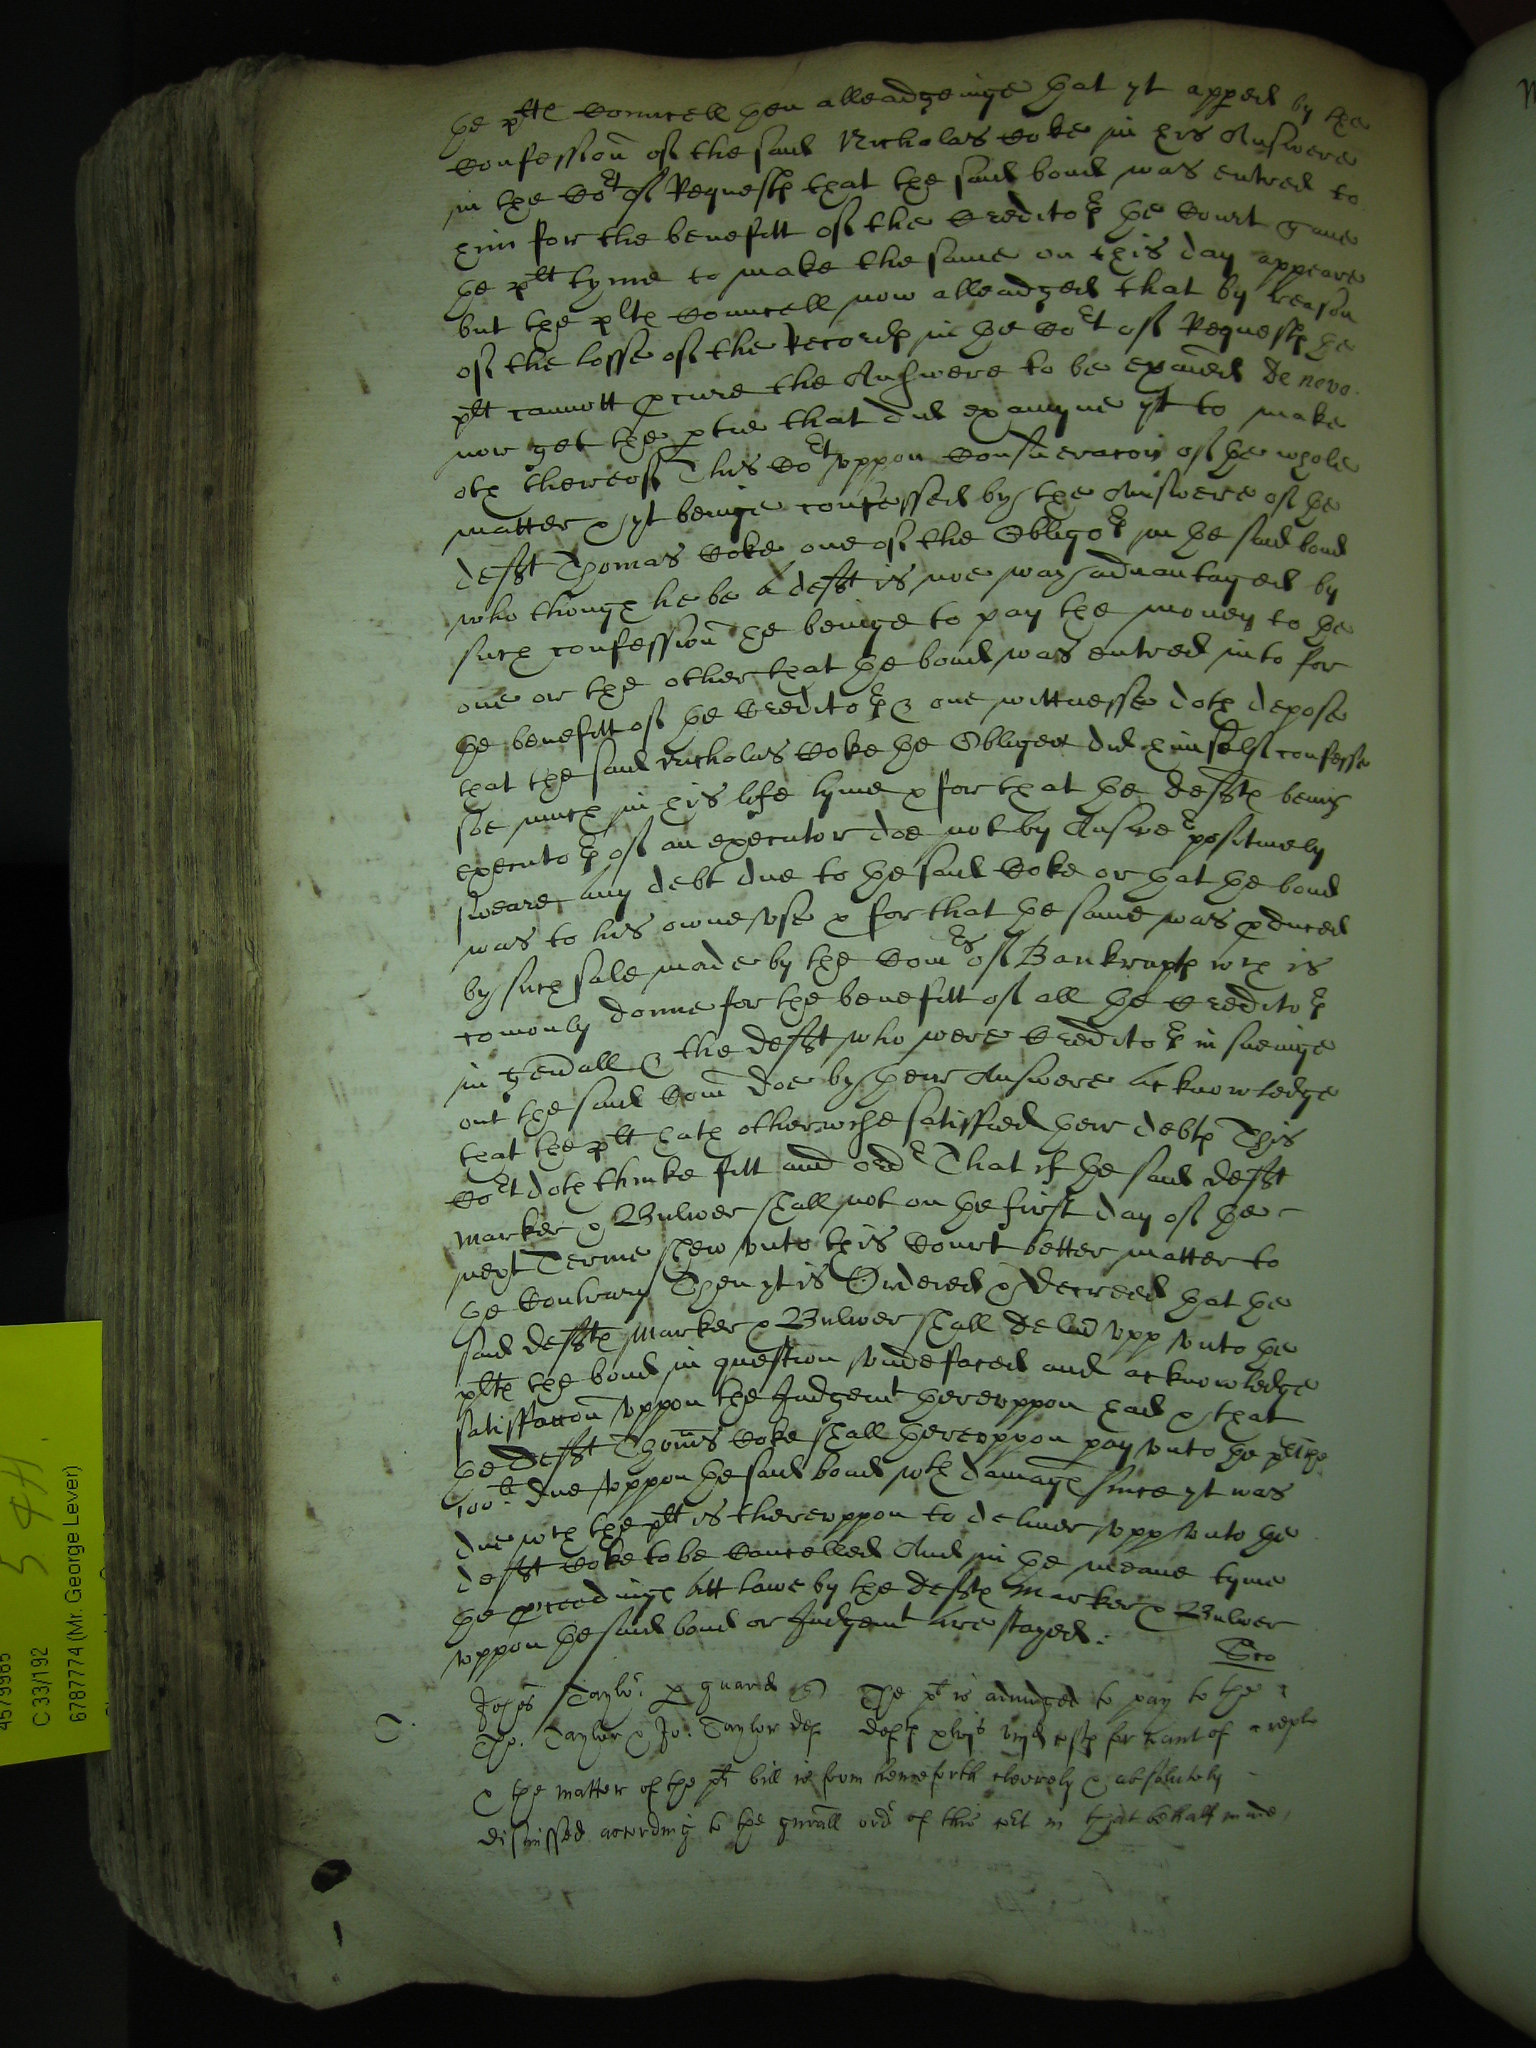 the plts Councell then alleadgeinge that yt appred by the
Confession of the said Nicholas Coke in his Answere
in the Cort of Requests that the said bond was entred to
him for the benefitt of the Creditors the Court gave
the plt tyme to make the same on this day appeare
but the plts Councell now alleadged that by reason
of the losse of the Records in the Cort of Requests the
plt cannott pcure the Answere to be exaied De novo
nor get the ptie that did examyne yt to make
oth thereof This Cort uppon Consideracon of the whole
matter & yt beinge confessed by the Answere of the
defft Thomas Coke one of the Obligors in the said bond
who though he be a defft is noe way advantaged by
such confession he beinge to pay the money to the
one or the other that the bond was entred into for
the benefitt of the Creditors & one wittnesse doth depose
that the said Nicholas Coke the Obligee did himself confesse
soe much in his life tyme & for that the deffts being
executors of an executor doe not by Answer positively
sweare any debt due to the said Coke or that the bond
was to his owne use & for that the same was pduced
by such sale made by the Comrs of Bankrupts wch is
comonly donne for the benefitt of all the Creditors
in genall & the defft who were Creditors in sueinge
out the said Com doe by their Answere acknowledge
that the plt hath otherwise satisfied their debts This
Cort doth thinke fitt and ordr That if the said defft
Marker & Bulwer shall not on the first day of the
next Terme shew unto this Court better matter to
the Contrary Then yt is Ordered & decreed that the
said deffts Marker & Bulwer shall delivr upp unto the
plts the bond in question undefaced and acknowledge
satisfaccon uppon the Judgemt thereuppon had & that
the Defft Thoms Coke shall thereuppon pay unto the plt the
100li due uppon the said bond wth damags since yt was
due wch the plt is thereuppon to deliver upp unto the
defft Coke to be Cancelled And in the meane tyme
the pceedings att lawe by the deffts Marker & Bulwer
uppon the said bond or Judgemt are stayed.
Johes Taylor p guard The plt is adiudged to pay to the
T.
Tho. Taylor & Jo: Taylor defs defts costs for want of a repl
& the matter of the plts bill is from henceforth cleerely & absolutely
dismissed according to the genall ordr of this cort in that behalf made
5 4H.
4579985
C 33/192
6787774 (Mr. George Lever)